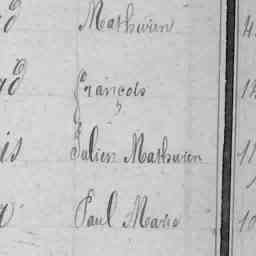 d Mathurin 4
gd François 14
is Julien Mathurin 11
Paul Marie 10